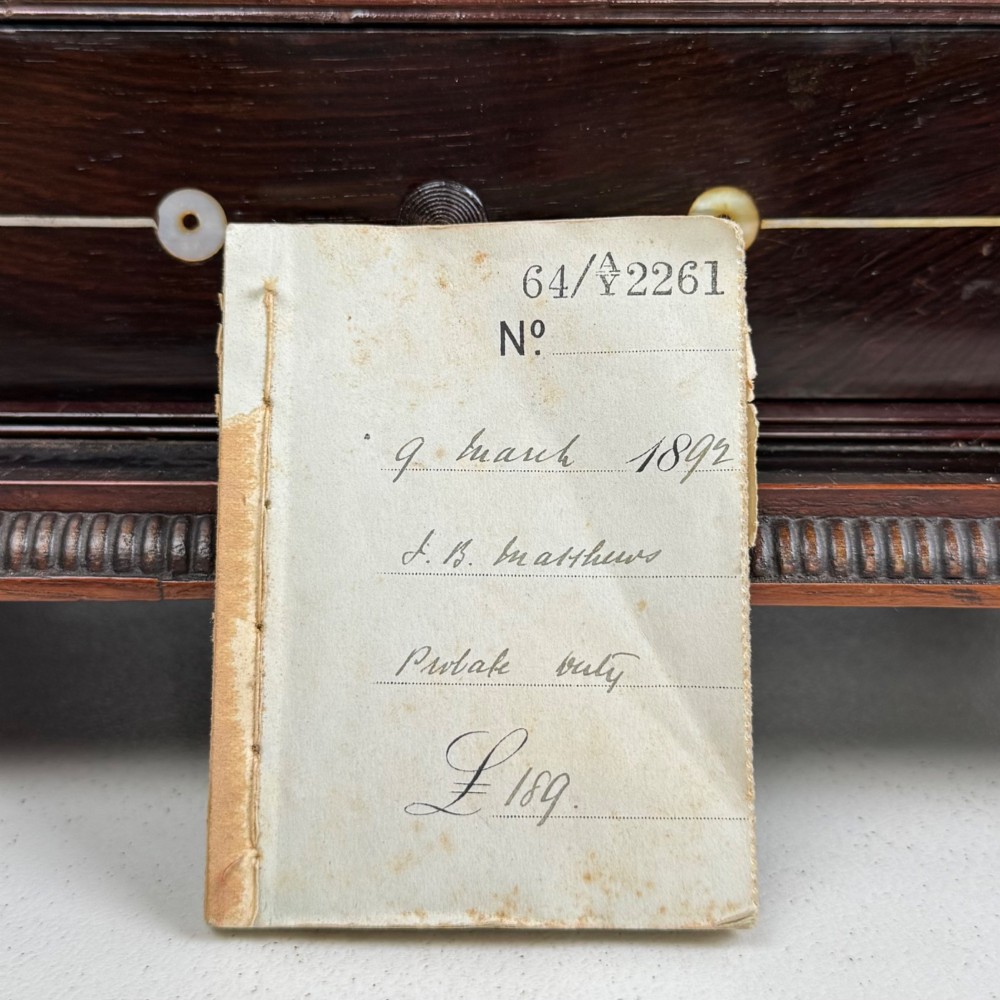 64/A/Y2261
Nº.
9 March 1892
J. B. Matthews
Probate Duty
£ 189.